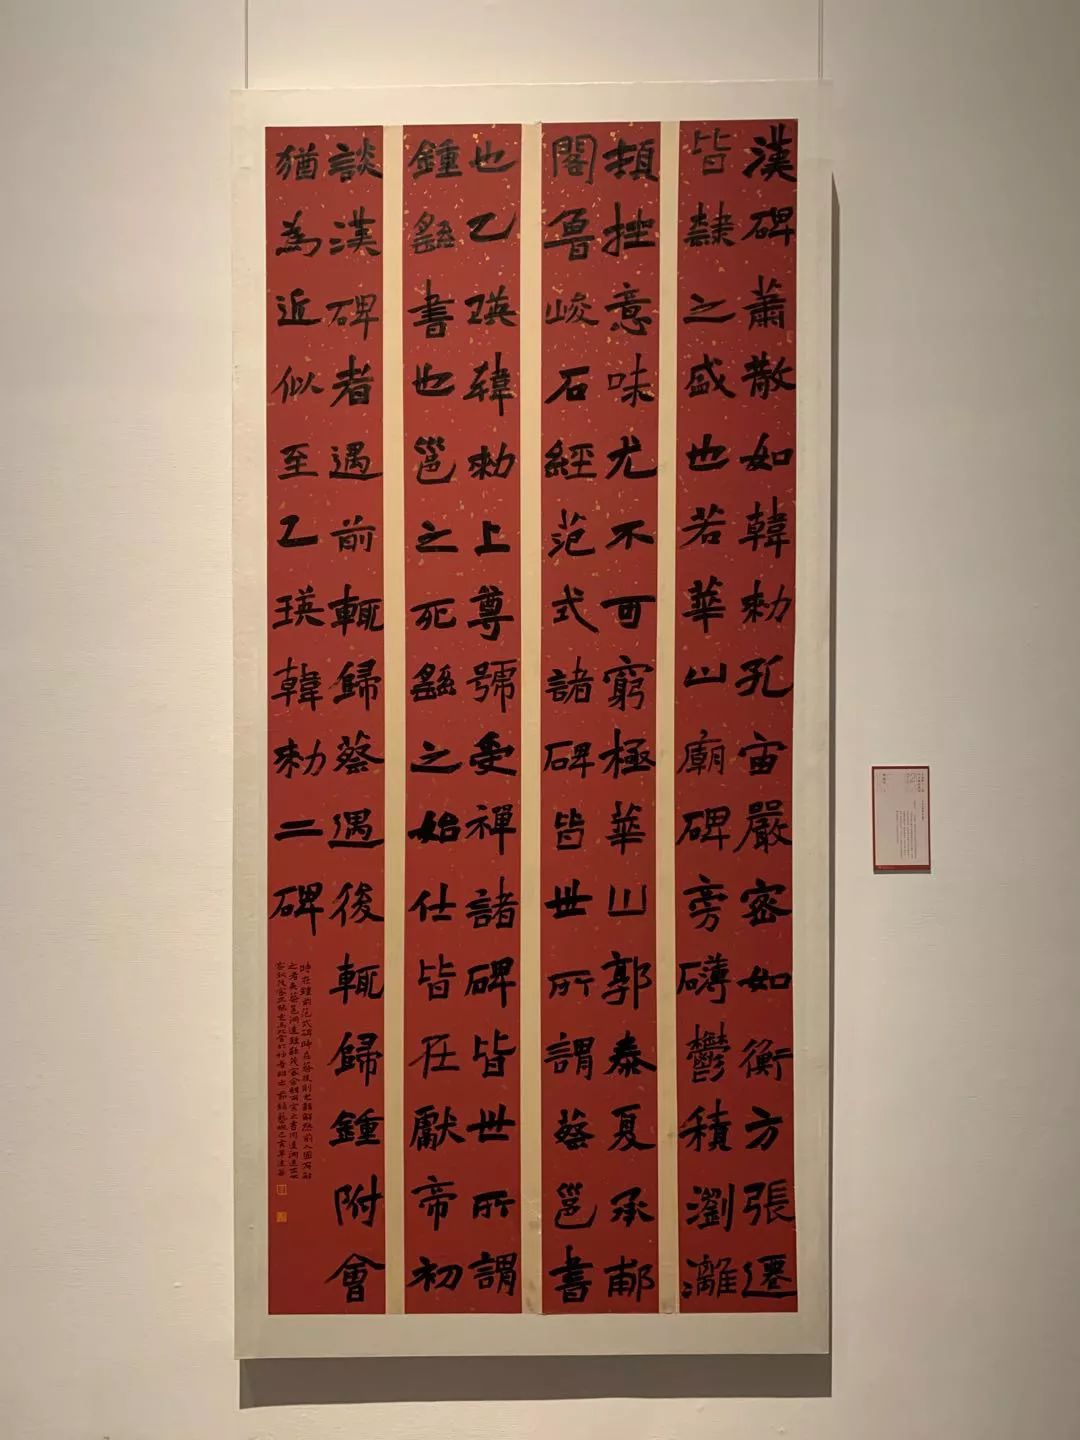 漢碑蕭散如韓勑孔宙嚴密如衡方張遷
皆隸之盛也若華山廟碑旁礴鬱積瀏漓
頓挫意味尤不可窮極華山郭泰夏承郙
閣魯峻石經范式諸碑皆世所謂蔡邕書
也乙瑛韓勑上尊號受禪諸碑皆世所謂
鍾繇書也邕之死繇之始仕皆在獻帝初
談漢碑者遇前輒歸蔡遇後輒歸鍾附會
猶為近似至乙瑛韓勑二碑
時在鍾前范式碑時在蔡後則尤難解然前人固有解
之者矣